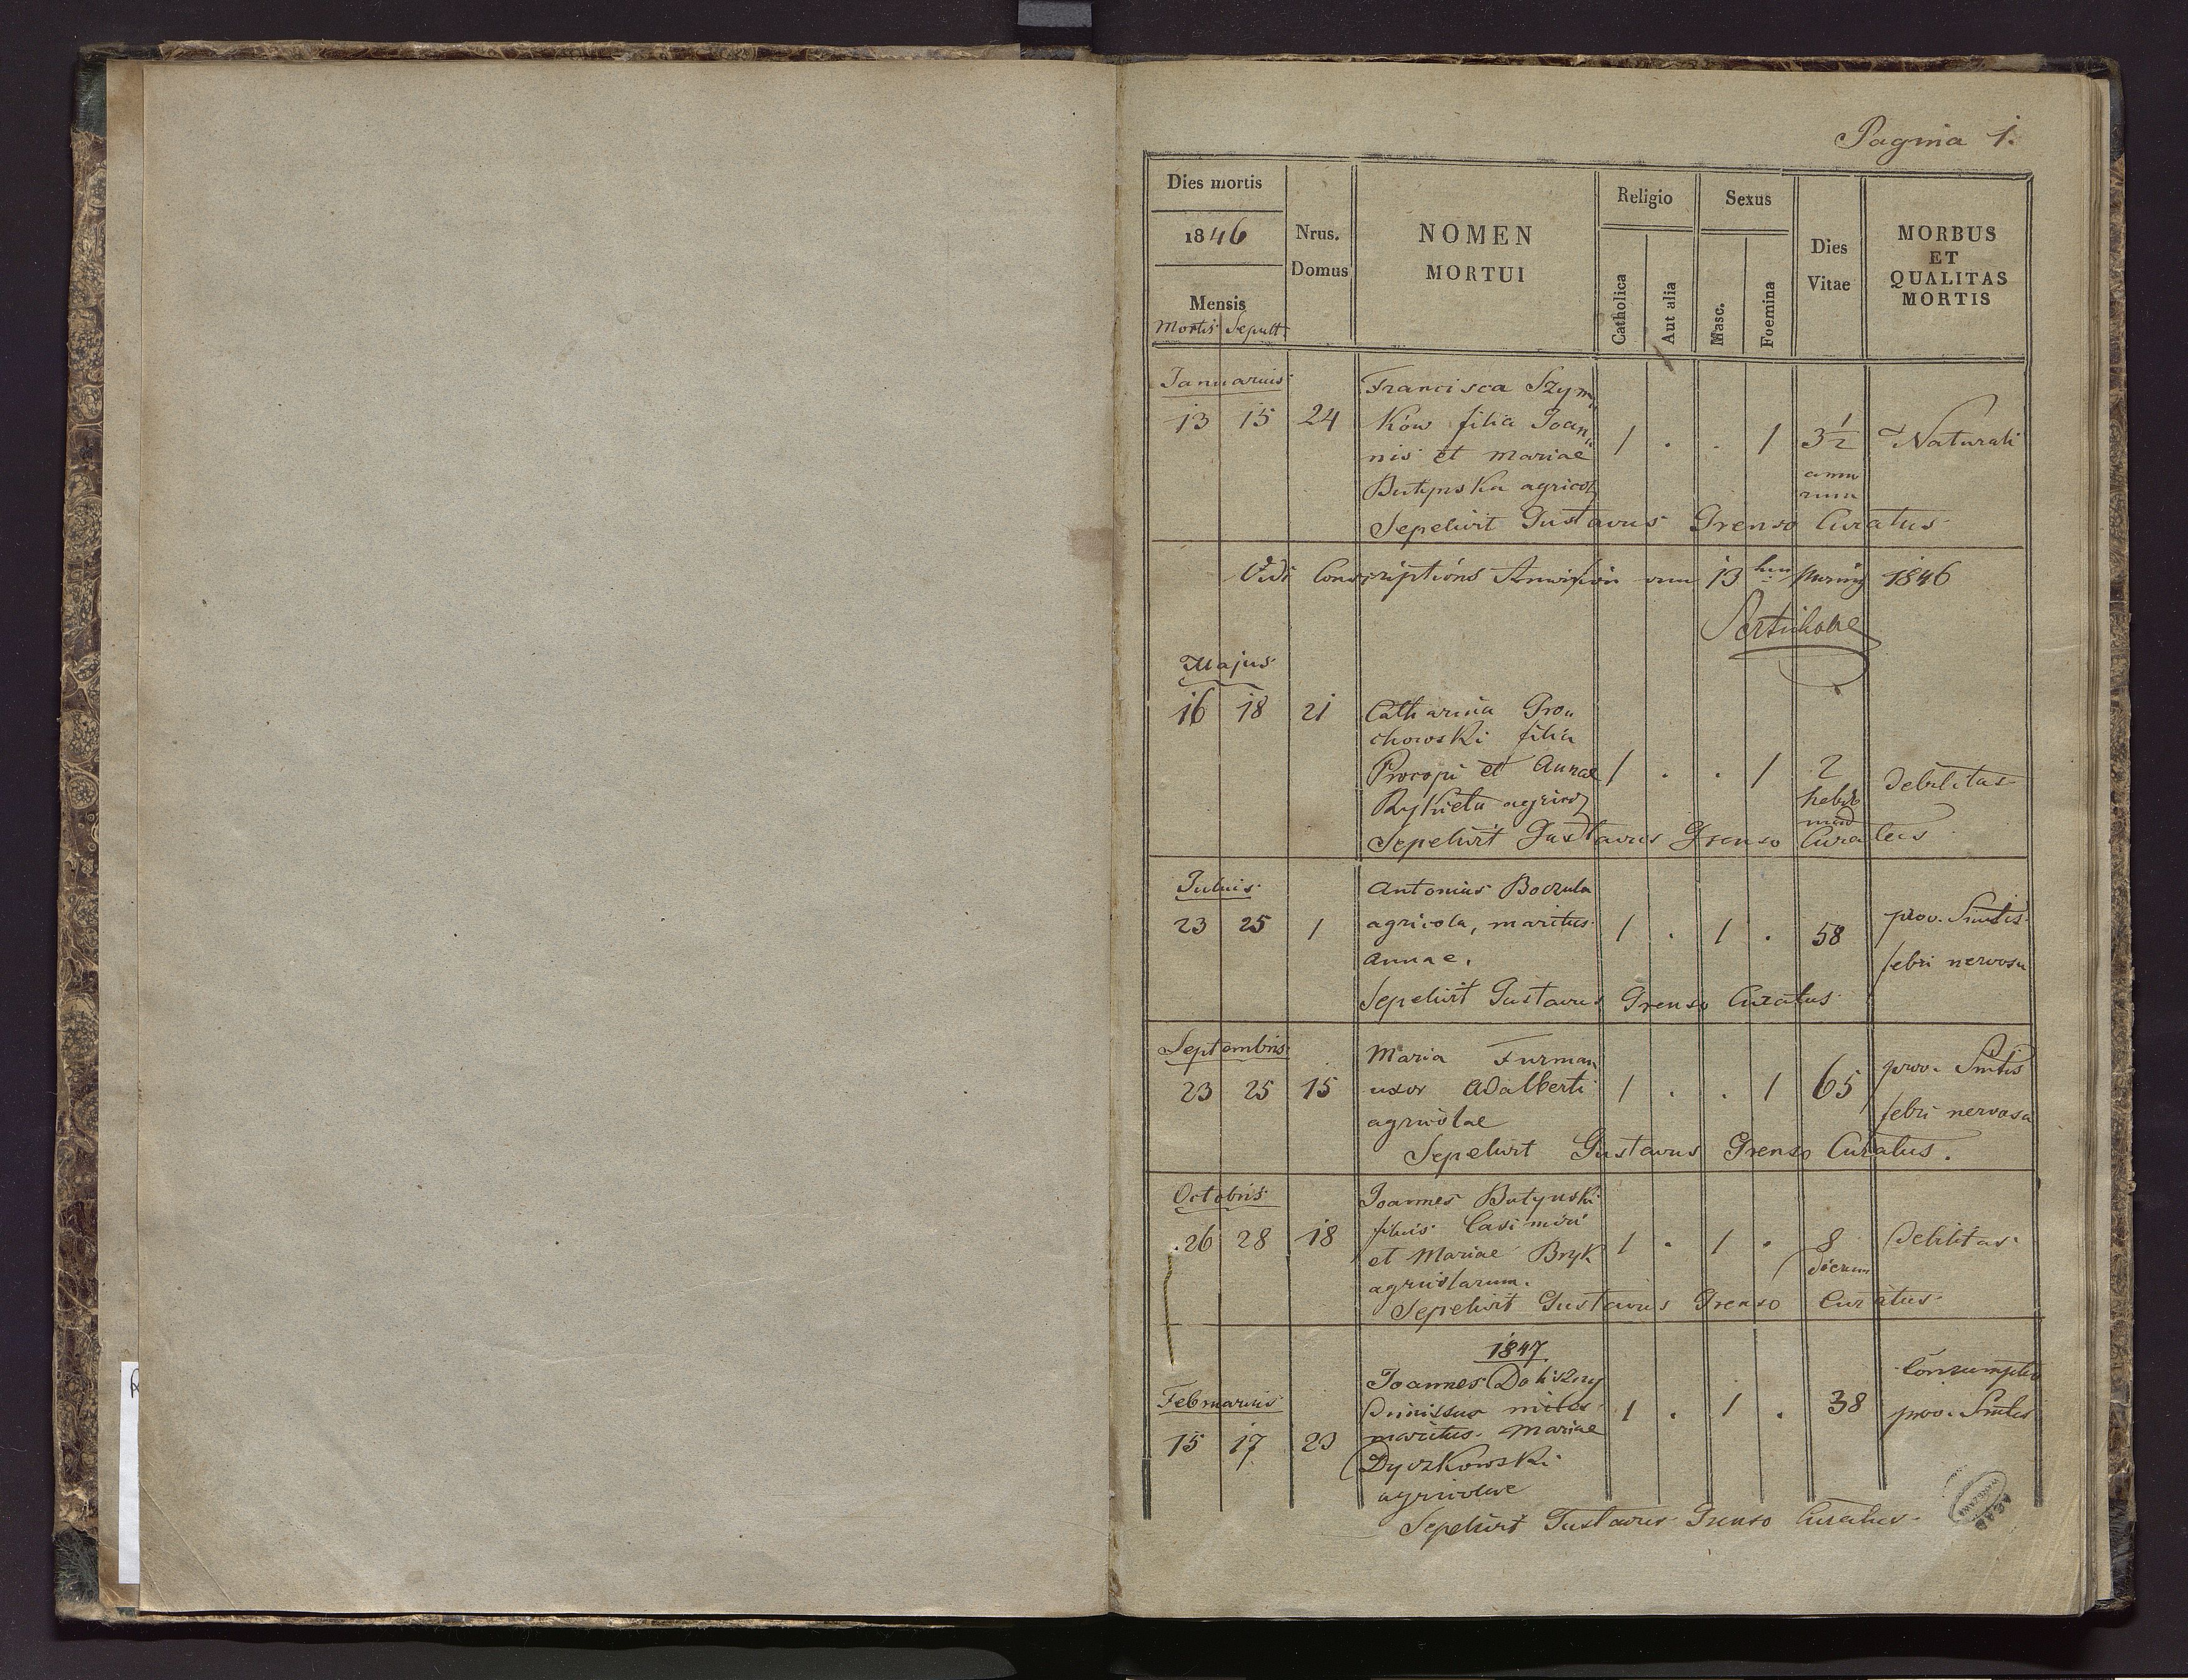 Pagina 1.
Dies mortis
1846
Mensis
Mortis Sepult
Nrus.
Domus
NOMEN
MORTUI
Religio
Catholica
Aut alia
Sexus
Masc.
Foemina
Dies
Vitae
MORBUS
ET
QUALITAS
MORTIS
Januarius
13 15 24
Francisca Szym
ków filia Joan
nis et Mariae
Butynska agricol
1 . . 1 3 1/2
annorum
Naturali
Sepelivit Gustavus Grenso Curatus
Vidi Conscriptions 13 1846
Majus
16 18 21
Catharina Gron
chowski filia
Procopi et Annae
Rykieta agricol
1 . . 1 2
hebdo
mad
Debilitas
Sepelivit Gustavus Grenso Curatus
Julius
23 25 1
Antonius Boczula
agricola, maritus
Annae.
1 . 1 . 58
prov. Smtis
febri nervosa
Sepelivit Gustavus Grenso Curatus
Septembris
23 25 15
Maria Furman
uxor Adalberti
agricolae
1 . . 1 65
prov. Smtis
febri nervosa
Sepelivit Gustavus Grenso Curatus.
Octobris
26 28 18
Joannes Butynski
filius Casimiri
et Mariae Bryk
agricolarum.
1 . 1 . 8
dierum
Debilitas
Sepelivit Gustavus Grenso Curatus
1847
Februarius
15 17 23
Joannes
Dimissus miles
maritus Mariae
Dyczkowski
agricolae
1 . 1 . 38
Consumptio
prov. Smtis
Sepelivit Gustavus Grenso Curatus
AGAD
WARSZAWA